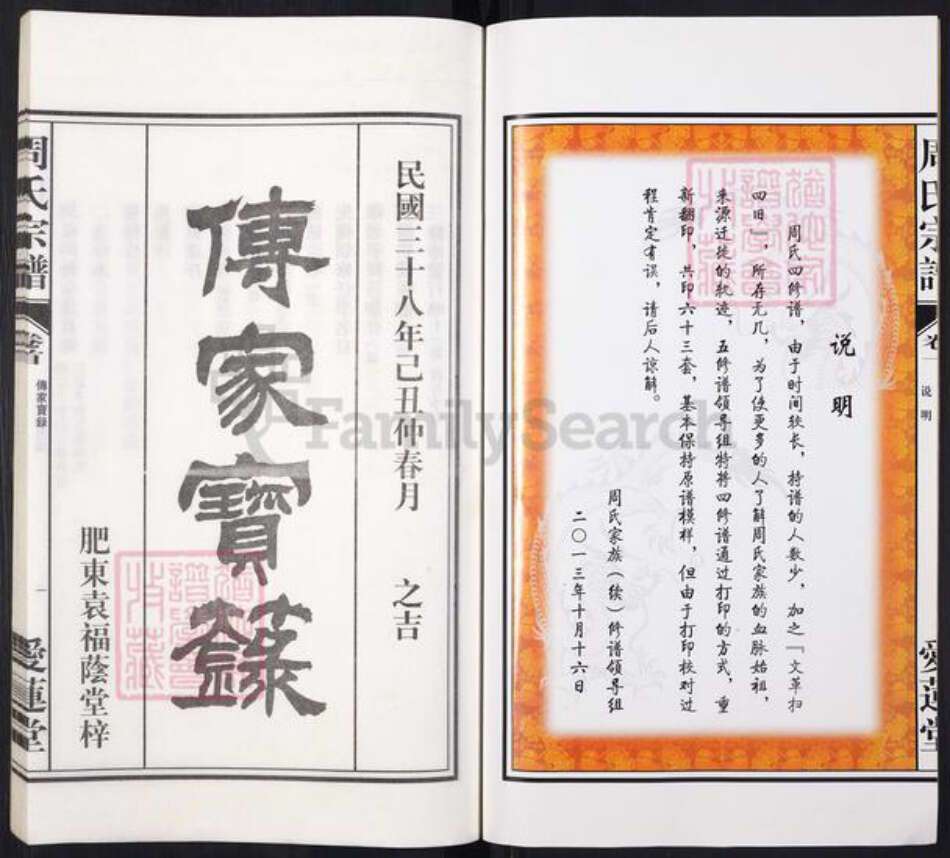 周氏宗譜
卷一
说明
说明
周氏四修谱，由于时间较长，持谱的人数少，加之「文革扫
四旧」，所存无几，为了使更多的人了解周氏家族的血脉始祖，
来源迁徙的轨迹，五修谱领导组特将四修谱通过打印的方式，重
新翻印，共印六十三套，基本保持原谱模样，但由于打印校对过
程肯定有误，请后人谅解。
周氏家族（续）修谱领导组
二〇一三年十月十六日
愛蓮堂
民國三十八年己丑仲春月 之吉
傳家寶籙
肥東袁福蔭堂梓
周氏宗譜
卷首
傳家寶録
一
愛蓮堂
FamilySearch